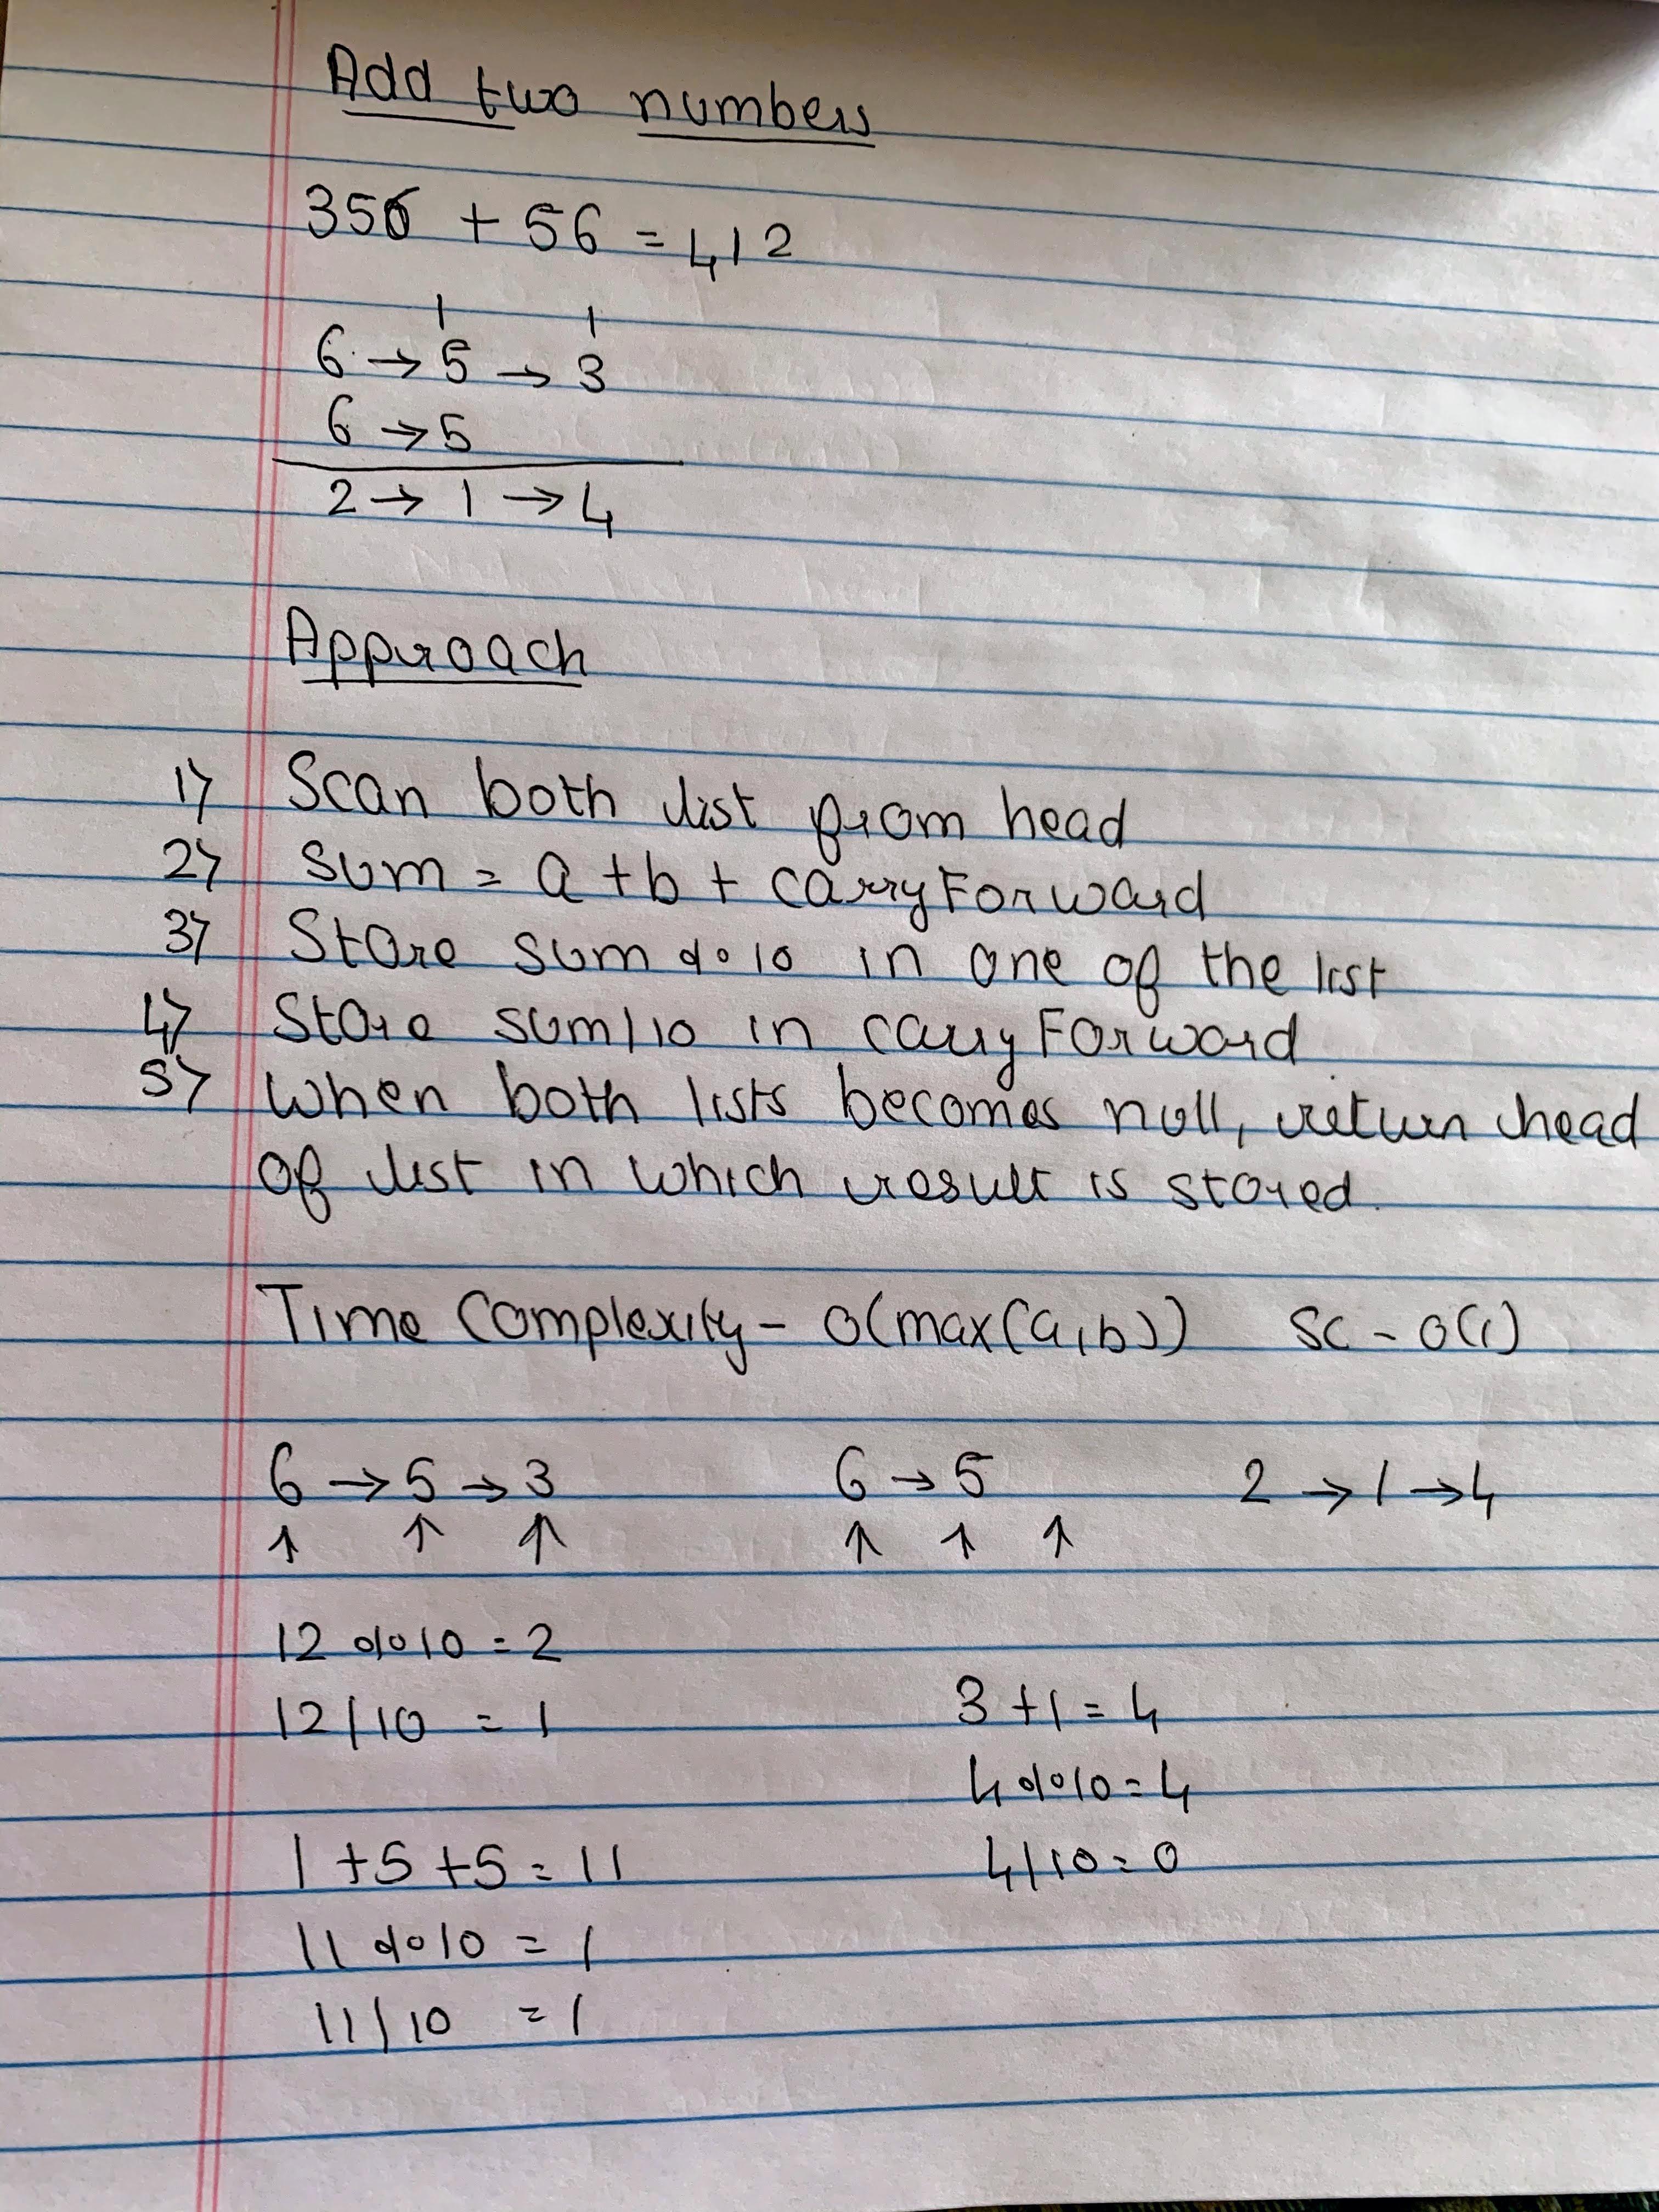 Add two numbers
356 + 56 = 412
1 1
6 → 5 → 3
6 → 5
2 → 1 → 4
Approach
1) Scan both list from head
2) Sum = a + b + carryForward
3) Store sum % 10 in one of the list
4) Store sum/10 in carryForward
5) When both lists becomes null, return head
of list in which result is stored.
Time Complexity - O(max(a,b)) SC - O(1)
6 → 5 → 3 6 → 5 2 → 1 → 4
↑ ↑ ↑ ↑ ↑ ↑
12 % 10 = 2
12/10 = 1
3 + 1 = 4
4 % 10 = 4
1 + 5 + 5 = 11
4/10 = 0
11 % 10 = 1
11/10 = 1